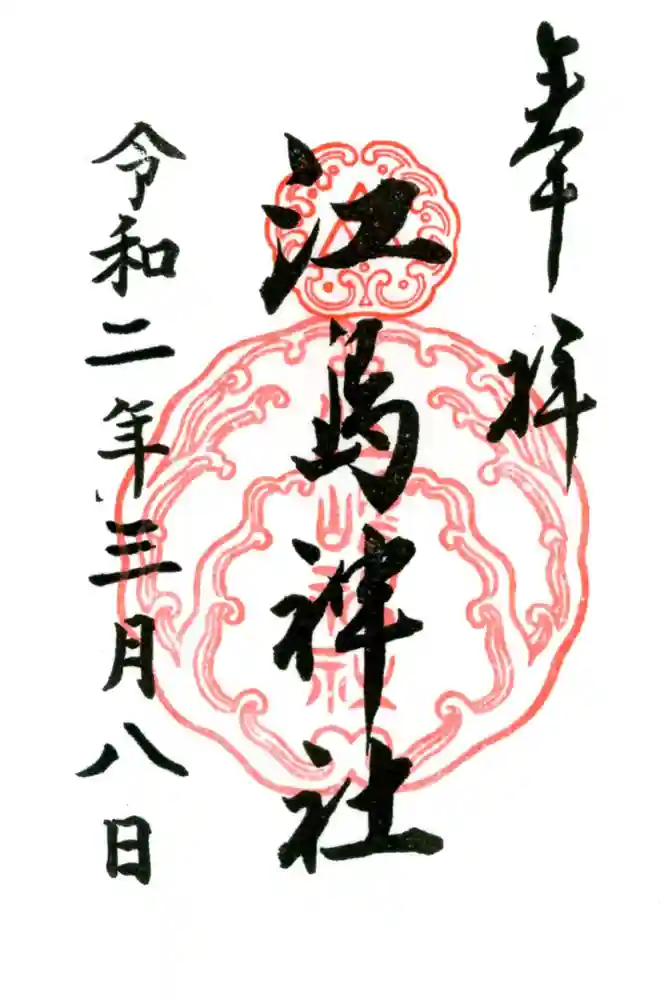 奉拝
江島神社
令和二年三月八日